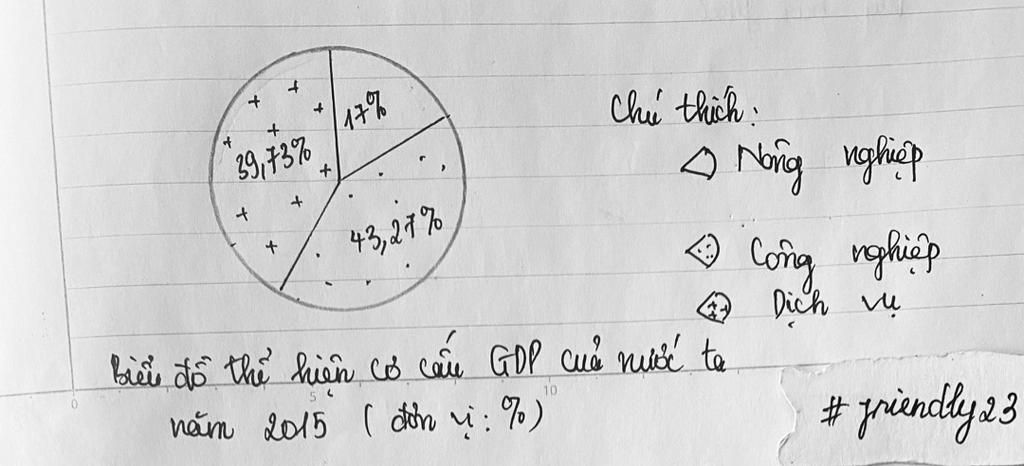 17%
39,73%
43,27%
Chú thích:
Nông nghiệp
Công nghiệp
Dịch vụ
Biểu đồ thể hiện cơ cấu GDP của nước ta
năm 2015 (đơn vị: %)
0 5 10
# friendly23